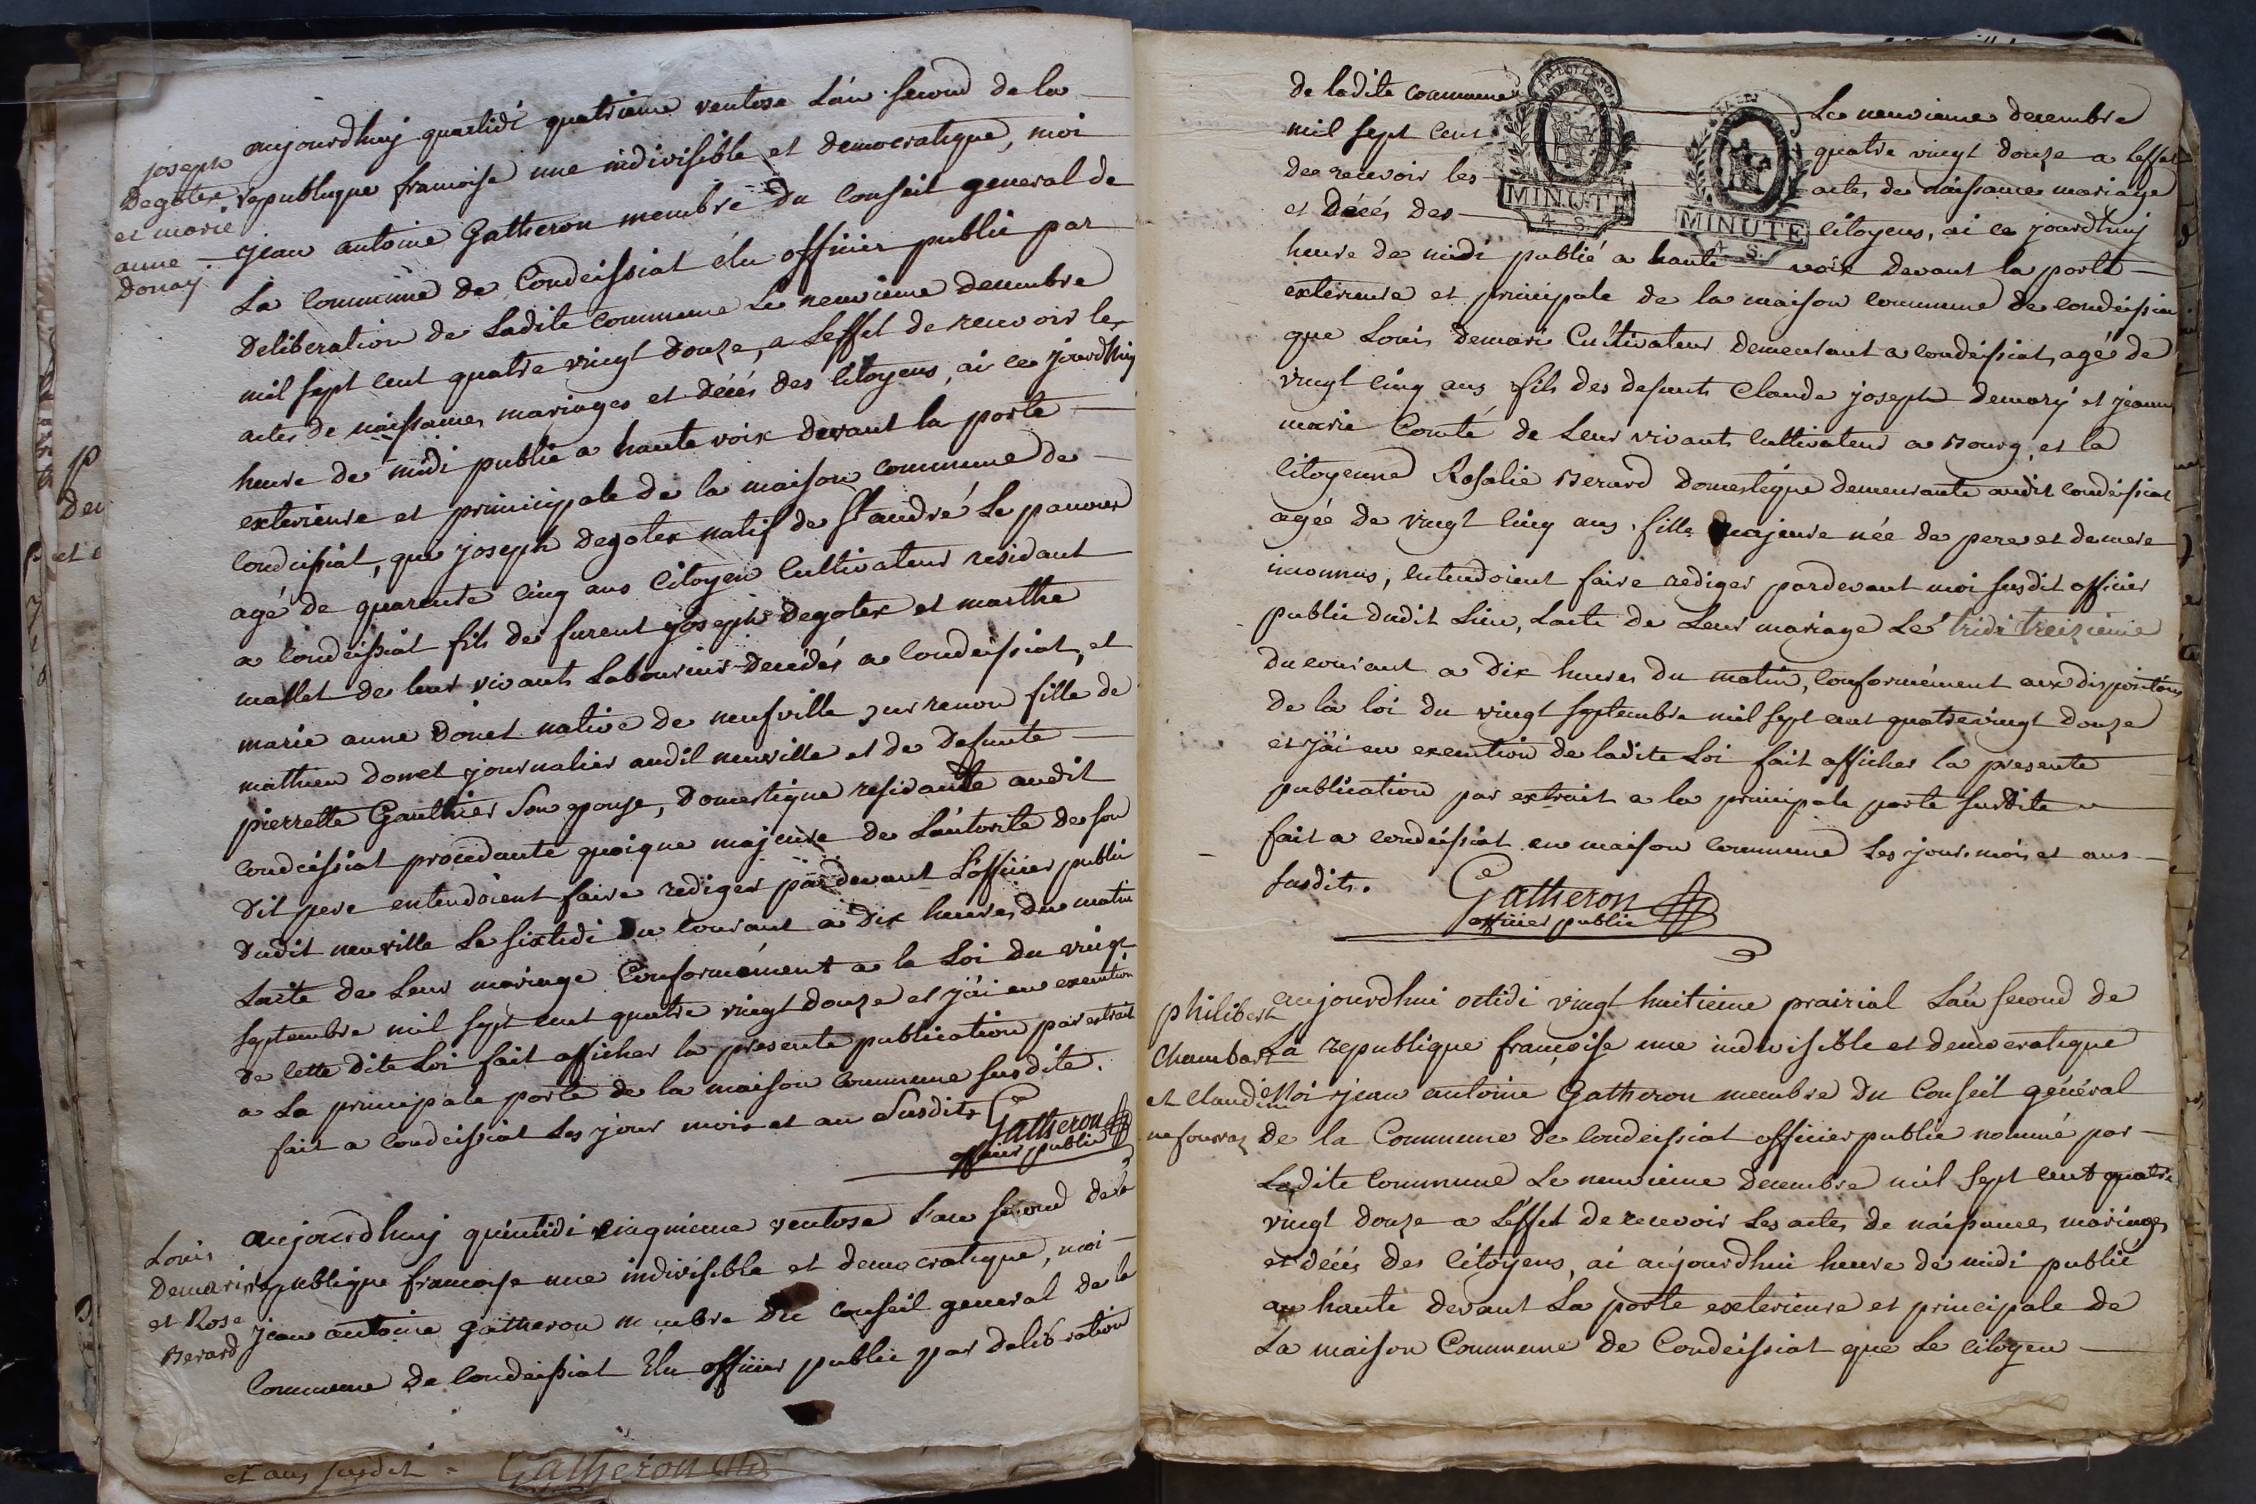 joseph
Degotex
et marie
anne
Donay
aujourdhuy quartidi quatrieme ventose L'an second de la
republique francoise une indivisible et democratique, moi
jean antoine Gatheron membre du Conseil general de
La Commune de Condeissiat élu officier public par
Deliberation de Ladite Commune Le neuvieme decembre
mil sept cent quatre vingt douze, a L'effet de recevoir les
actes de naissances mariages et décés des Citoyens, ai ce jourdhuy
heure de midi publie a haute voix devant la porte
exterieure et principale de la maison commune de
Condeissiat, que joseph Degotex natif de St andré Le panoux
agé de quarente cinq ans Citoyen Cultivateur residant
a Condeissiat fils de furent joseph Degotex et marthe
mallet de leur vivants Laboureurs décédés a Condeissiat, et
marie anne donet native de neufville sur renon fille de
mathieu donet journalier audit neuville et de defunte
pierrette Gauthier son epouse, Domestique residante audit
Condeissiat procedante quoique majeure de L'autorite de son
dit pere entendoient faire rediger pardevant L'officier public
dudit neuville Le sixtidi du courant a dix heures du matin
L'acte de Leur mariage Conformément a la Loi du vingt
septembre mil sept cent quatre vingt douze et j'ai en execution
de cette dite Loi fait afficher la presente publication par extrait
a La principale porte de la maison commune susdite.
fait a Condeissiat Les jour mois et an Susdits Gatheron
officier public
Louis
Demari
et Rose
Berard
aujourdhuy quintidi cinquieme ventose l'an second de la
republique francoise une indivisible et democratique, moi
jean antoine gatheron membre du Conseil general de la
Commune de Condeissiat Elu officier public par deliberation
et ans susdit = Gatheron
de ladite commune Le neuvieme decembre
mil sept cent quatre vingt douze a L'effet
de recevoir les actes de naissances mariage
et Décés des Citoyens, ai ce jourdhuy
MINUTE
4 S.
MINUTE
4 S.
heure de midi publié a haute voix devant la porte
exterieure et principale de la maison commune de Condeissiat
que Louis demari Cultivateur demeurant a Condeissiat, agé de
vingt cinq ans fils des defunts Claude joseph demary et jeanne
marie Comté de Leur vivants Cultivateur a Bourg, et la
Citoyenne Rosalie Berard Domestique demeurante audit Condeissiat
agée de vingt cinq ans, fille majeure née de pere et de mere
inconnus, Entendoient faire rediger pardevant moi susdit officier
public dudit Lieu, L'acte de Leur mariage Le tridi treizieme
du courant a dix heures du matin, Conformément aux dispositions
de la loi du vingt septembre mil sept cent quatre vingt douze
et j'ai en execution de ladite Loi fait afficher la presente
publication par extrait a la principale porte susdite
fait a Condeissiat en maison commune Les jour, mois et ans
susdits. Gatheron
officier public
philibert
Chambard
et Claudi
ne fourraz
aujourdhui octidi vingt huitieme prairial L'an second de
La republique françoise une indivisible et democratique
Moi jean antoine Gatheron membre du Conseil général
de la Commune de Condeissiat officier public nommé par
Ladite Commune Le neuvieme decembre mil sept cent quatre
vingt douze a L'effet de recevoir Les actes de naissances, mariages
et décés des Citoyens, ai aujourdhui heure de midi publié
au haute devant La porte exterieure et principale de
La maison Commune de Condeissiat que Le Citoyen